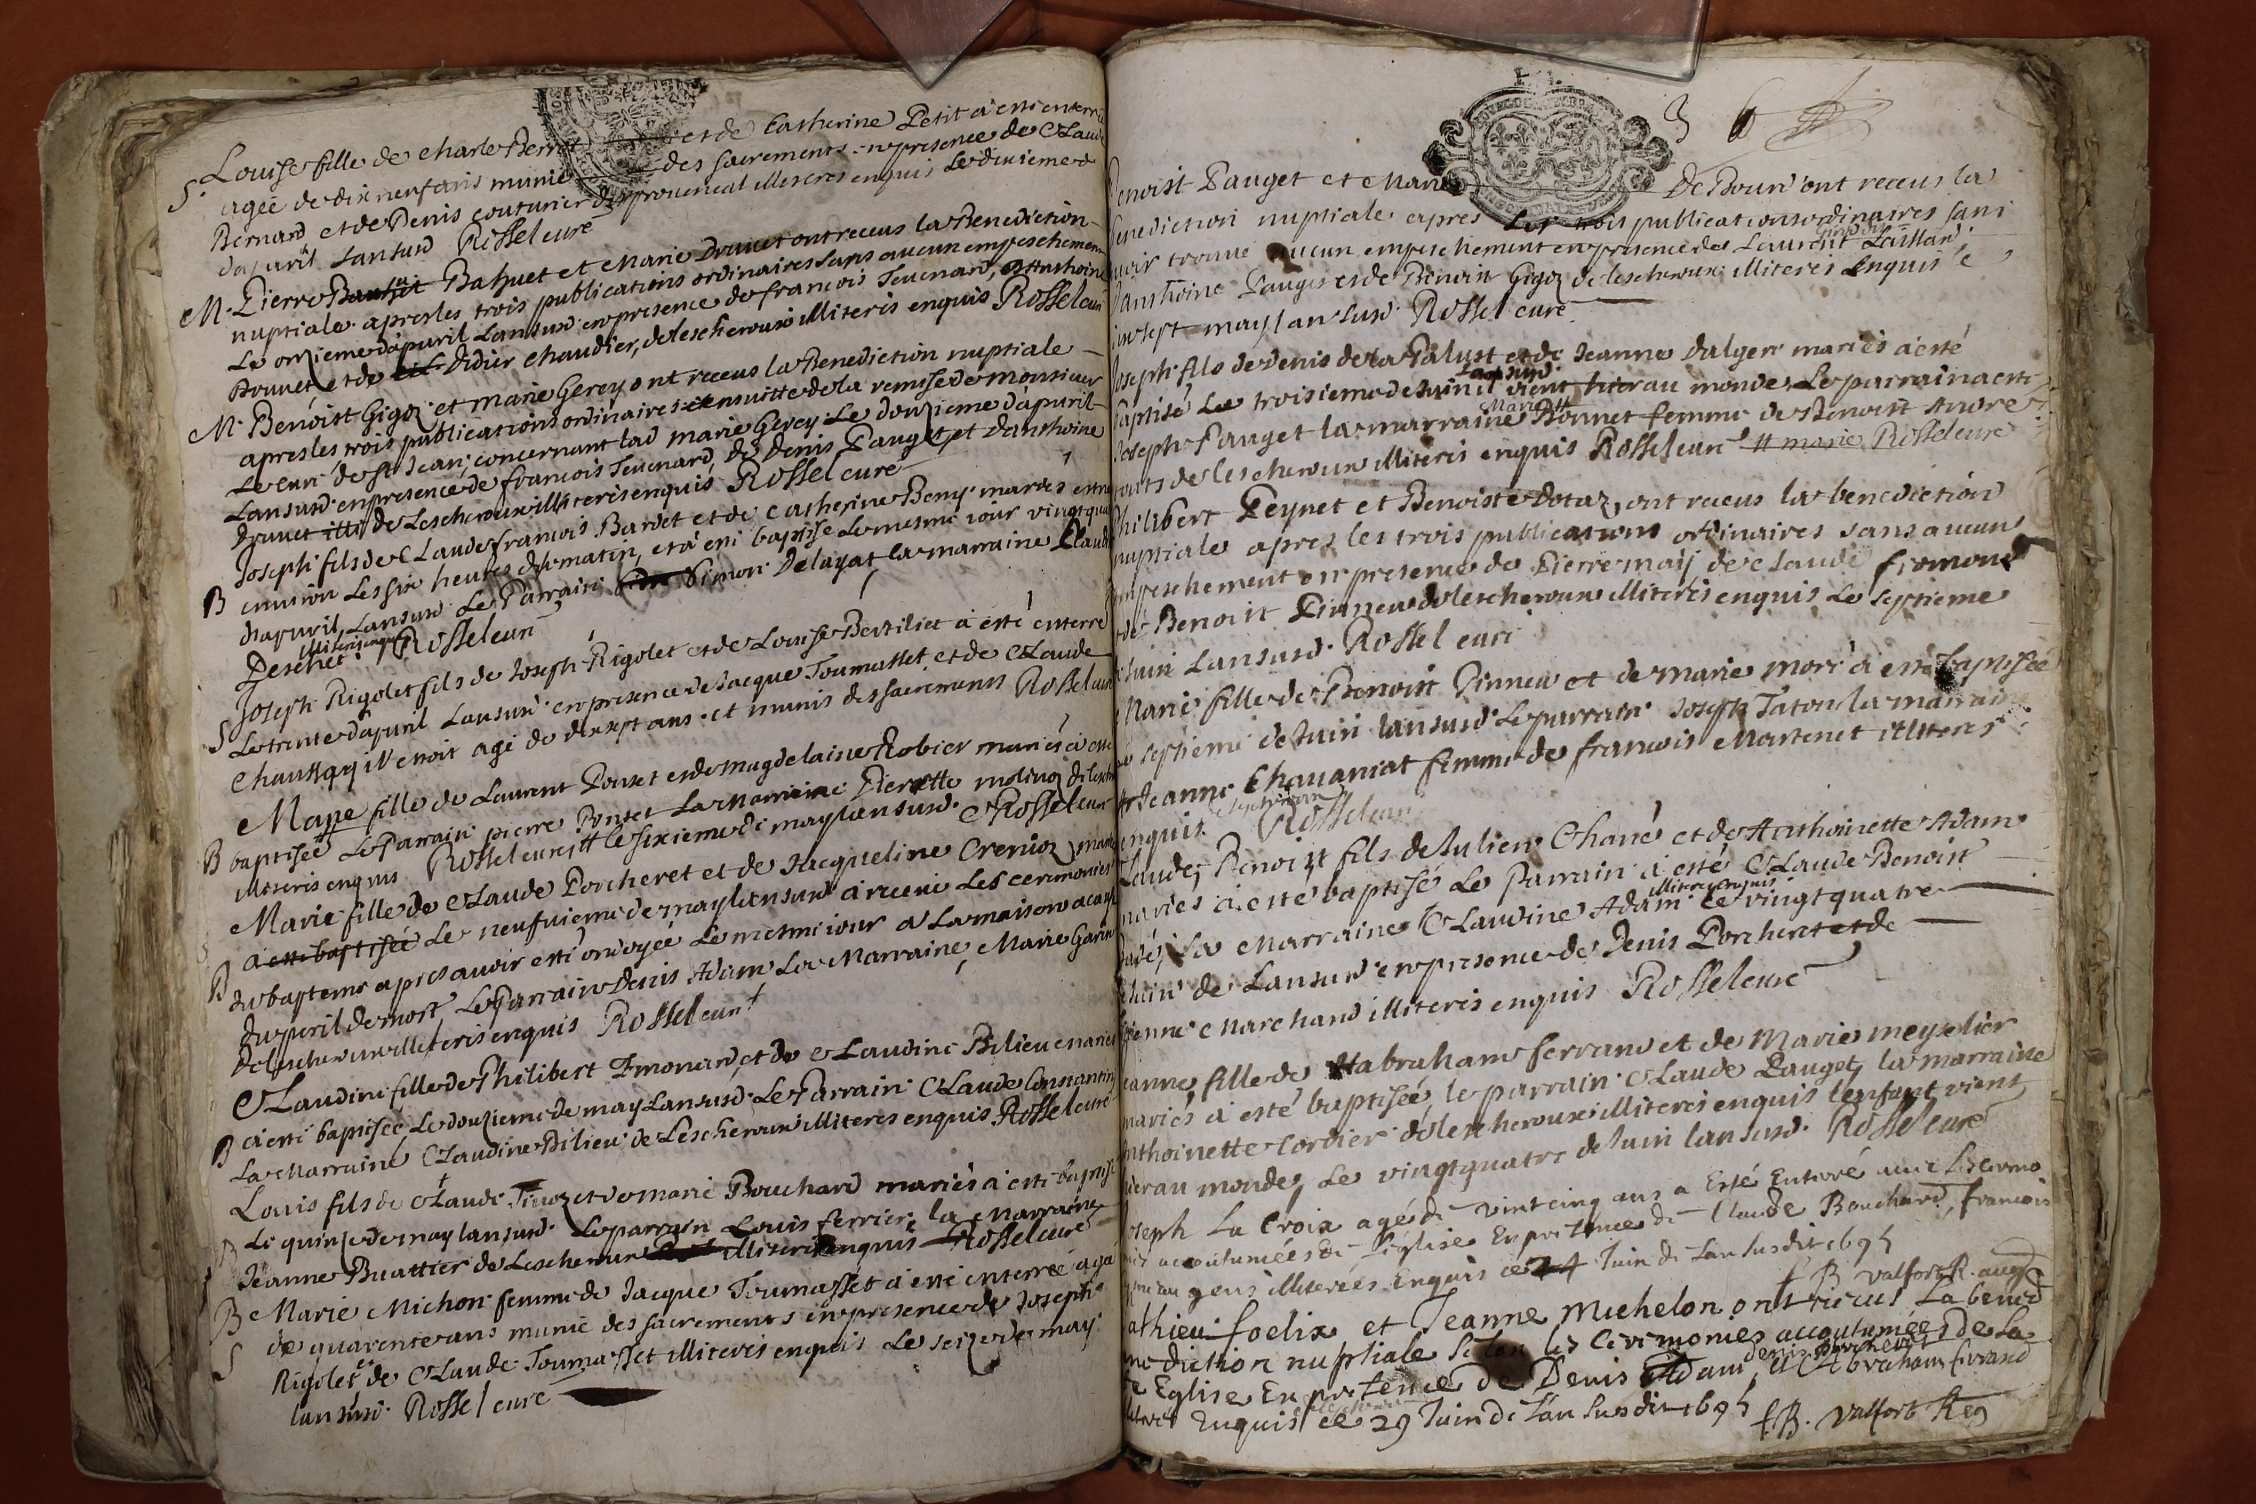 S. Louise fille de Charle et de Catherine Petit a esté enterrée
agée de dix neuf ans munie des sacrements en presence de Claude
Bernard et de Denis couturier illiteres enquis Le dixieme
dapvril Lansusd Rossel curé
M. Pierre Bahuet et Marie Drouet ont receus la Benediction
nuptiale apres les trois publications ordinaires sans aucun empeschement
Le onzieme dapvril Lansusd en presence de francois Teuenard, d'Anthoine
Drouet et de Didier Chaudier, de lescheroux illiteris enquis Rossel curé
M. Benoist Gigoz et marie Gerey ont receus la Benediction nuptiale
apres les trois publications ordinaires ensuitte de la remise de monsieur
Le curé de St Jean, concernant lad marie Gerey Le douzieme dapvril
Lansusd en presence de francois Teuenard, de Denis Pauget et danthoine
Drouet de Lescheroux illiteris enquis Rossel curé
Joseph fils de Claude francois Bardet et de Catherine Bony mariés est né
B environ les six heures du matin, et a esté baptisé le mesme iour vingt quatre
dapvril Lansusd Le Parrain Simon Delayat la marraine Claudine
Peschet illiteris enquis Rossel curé
Joseph Rigolet fils de Joseph Rigolet et de Louise Bertiliet a esté enterré
S Le trente dapvril Lansusd en presence de Jacque Toumasset et de Claude
agé de dixsept ans et munis des sacrements Rossel curé
Marie fille de Laurent Ponset et de Magdelaine Robier mariés a esté
B baptisée Le Parrain pierre Ponset La Marraine Pierette molinoz de lescheroux
illiteris enquis Rossel curé # le sixieme de may lansusd. Rossel curé
Marie fille de Claude Porcheret et de Jacqueline Crenioz mariés
B a esté baptisée Le neufuieme de may lansusd a receue Les ceremonies
du bapteme apres avoir esté ondoyée Le mesme iour a La maison a cause
du peril de mort, Le Parrain Denis Adam La Marraine, Marie Garin
de lescheroux illiteris enquis Rossel curé
Claudine fille de Philibert Emonard, et de Claudine Bilieu mariés
B a esté baptisée Le douzieme de may Lansusd. Le Parrain Claude Constantin
La Marraine Claudine Bilieu de Lescheroux illiteris enquis Rossel curé
Louis fils de Claude et de marie Bouchard mariés a esté baptisé
B Le quinze de may lansusd. Le parrain Louis ferrier la Marraine
Jeanne Buattier de Lescheroux illiteris enquis Rossel curé
Marie Michon femme de Jacque Toumasset a esté enterrée agée
S de quarente ans munie des sacrements en presence de Joseph
Rigolet et de Claude Toumasset illiteris enquis Le seize de may
lansusd. Rossel curé
3
Benoist Pauget et Marie De Bourd ont receus la
benediction nuptiale apres Les trois publications ordinaires sans
avoir trouué aucun empeschement en presence de Laurent Laissard
danthoine Pauget et de Benoit Gigoz de lescheroux illiteris Enquis Le
dixsept may lansusd. Rossel curé
Joseph fils de Denis de la Palust et de Jeanne Dalger mariés a esté
baptisé Le troisieme de Juin lansusd vient hier au monde Le parrain a esté
Joseph Pauget la marraine Marie Bonnet femme de Benoist Andre
touts de lescheroux illiteris enquis Rossel curé # marie Rossel curé
Philibert Peynet et Benoiste Dotaz, ont receus la benediction
nuptiale apres les trois publications ordinaires sans aucun
empeschement en presence de Pierre may de Claude fromont
et de Benoit Pinneu de lescheroux illiteris enquis Le septieme
de Juin Lansusd. Rossel curé
Marie fille de Benoist Pinneu et de marie moré a esté baptisée
Le septieme de Juin lansusd. Le parrain Joseph Taton la marraine
Jeanne Chauaniat femme de francois Martenet illiteres
enquis Rossel curé
Claude, Benoist fils de Julien Chané et de Anthoinette Adam
mariés a esté baptisé Le Parrain a esté Claude Benoist
La Marraine Claudine Adam illiteris enquis Le vingt quatre
Juin de Lansusd en presence de Denis Porcheret et de
Estienne Marchand illiteris enquis Rossel curé
Jeanne fille de Habraham ferrand et de Marie meynelier
mariés a esté baptisée, le parrain Claude Pauget, la marraine
Anthoinette Cordier de lescheroux illiteris enquis l'enfant vient
hier au monde, Le vingt quatre de Juin lansusd. Rossel curé
Joseph La Croix agé de vint cinq ans a Esté Enterré avec Les ceremo
nies accoutumées de l'église En presence de Claude Bouchard, francois
gens illiterés Enquis ce 24 Juin de L'an susdit 1695
f B Valfort R. aug
Mathieu foelix et Jeanne Michelon ont receus La bene
diction nuptiale selon les Ceremonies accoutumées de La
Ste Eglise En presence de Denis Adam denis porcheret et Abraham ferrand
Enquis ce 29 Juin de L'an susdit 1695 f B. Valfort